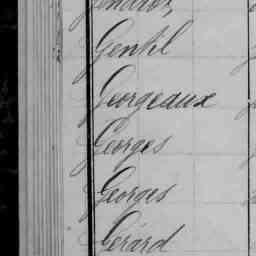 Gentil
Georgeaux
Georges
Georges
Gérard